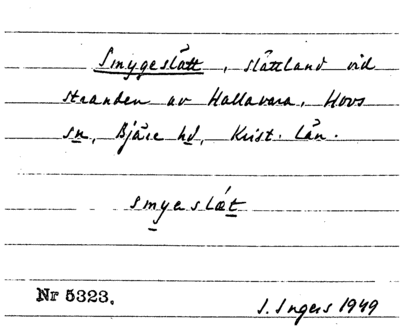 Smygeslått, slåttland vid
stranden av Hallavara, Hovs
sn, Bjäre hd, Krist. län.
smyeslæt
Nr 5323.
I. Ingers 1949